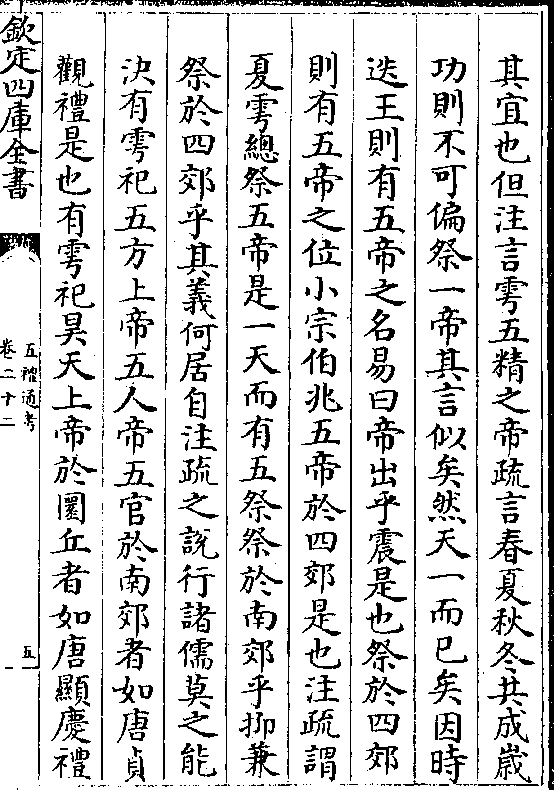 其宜也但注言雩五精之帝疏言春夏秋冬共成嵗
功則不可偏祭一帝其言似矣然天一而已矣因時
迭王則有五帝之名易曰帝出乎震是也祭於四郊
則有五帝之位小宗伯兆五帝於四郊是也注疏謂
夏雩總祭五帝是一天而有五祭祭於南郊乎抑兼
祭於四郊乎其義何居自注疏之說行諸儒莫之能
決有雩祀五方上帝五人帝五官於南郊者如唐貞
觀禮是也有雩祀昊天上帝於圜丘者如唐顯慶禮
欽定四庫全書
五禮通考
卷二十二
五